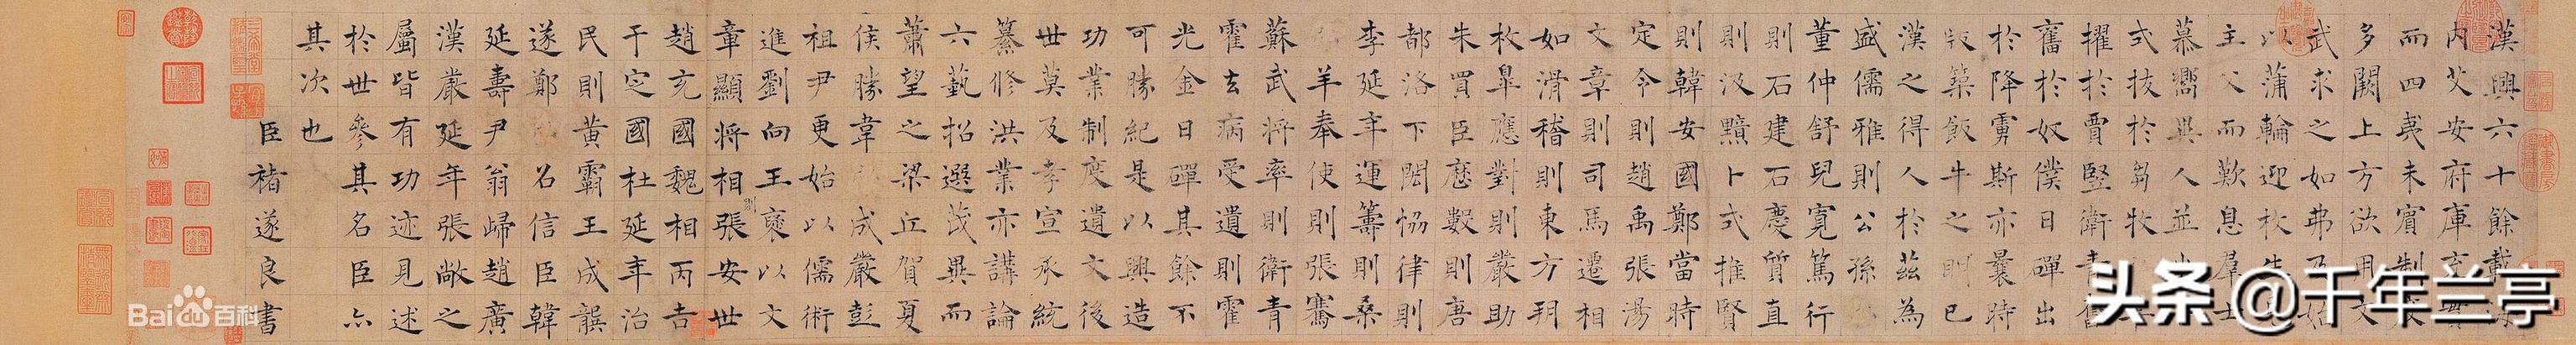 漢興六十餘載海
內艾安府庫充實
而四夷未賓制度
多闕上方欲用文
武求之如弗及始
以蒲輪迎枚生見
主父而歎息羣士
慕嚮異人並出
式拔於芻牧
擢於賈豎衛青奮
奮於奴僕日磾出
於降虜斯亦曩時
版築飯牛之朋已
漢之得人於茲為
盛儒雅則公孫
董仲舒兒寬篤行
則石建石慶質直
則汲黯卜式推賢
則韓安國鄭當時
定令則趙禹張湯
文章則司馬遷相
如滑稽則東方朔
枚皐應對則嚴助
朱買臣曆數則唐
都洛下閎協律則
李延年運籌則桑
羊奉使則張騫
蘇武將率則衛青
霍去病受遺則霍
光金日磾其餘不
可勝紀是以興造
功業制度遺文後
世莫及孝宣承統
纂修洪業亦講論
六藝招選茂異而
蕭望之梁丘賀夏
侯勝韋成嚴彭
祖尹更始以儒術
進劉向王褒以文
章顯將相則張安世
趙充國魏相丙吉
于定國杜延年治
民則黃霸王成龔
遂鄭召信臣韓
延壽尹翁歸趙廣
漢嚴延年張敞之
屬皆有功迹見述
於世參其名臣亦
其次也
臣褚遂良書
Bai百科
头条 @千年兰亭